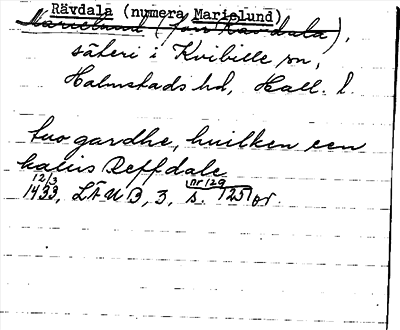 Rävdala (numera Marielund)
Marielund (förr Rävdala),
säteri i Kvibille sn,
Halmstads hd, Hall. l.
tuo gardhe, huilken een
kalus Reffdale
12/3 nr 129
1433, LÄUB, 3, s. 125 or.